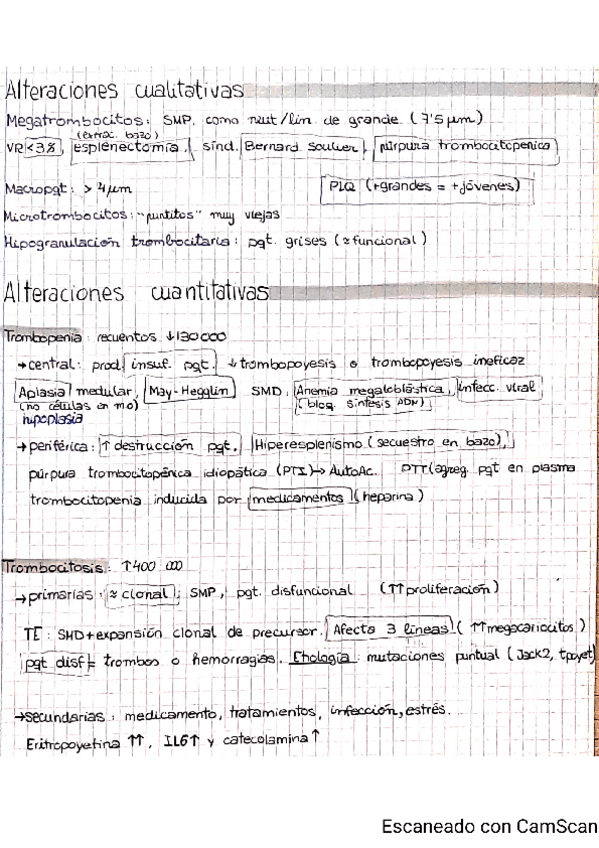 Alteraciones cualitativas
Megatrombocitos: SMP. como neut/lin de grande. (7'5 µm)
(extrac. bazo)
VR <3%, esplenectomía, sind. Bernard soulier, púrpura trombocitopenica
Macropqt: > 4 µm
PLQ (+grandes = +jóvenes)
Microtrombocitos: "puntitos" muy viejas
Hipogranulación trombocitaria: pqt. grises (≈ funcional)
Alteraciones cuantitativas
Trombopenia: recuentos ↓130000
→central: prod insuf. pqt. ↓trombopoyesis o trombopoyesis ineficaz
Aplasia medular, May-Hegglin SMD. Anemia megaloblástica, infecc. viral
(no células en mo) (bloq. síntesis ADN)
hipoplasia
→periférica: ↑ destrucción pqt. Hiperesplenismo (secuestro en bazo),
púrpura trombocitopénica idiopática (PTI)→ AutoAc. PTT(agreg. pqt en plasma
trombocitopenia inducida por medicamentos (heparina)
Trombocitosis: ↑400 000
→primarias: ≈ clonal; SMP, pqt. disfuncional (↑↑proliferación)
TE: SHD+expansión clonal de precursor. Afecta 3 líneas (↑↑megacariocitos)
pqt disf = trombos o hemorragias. Etiología: mutaciones puntual (Jack2, tpoyet)
→secundarias: medicamento, tratamientos, infección, estrés.
Eritropoyetina ↑↑, IL6↑ y catecolamina ↑
Escaneado con CamScan